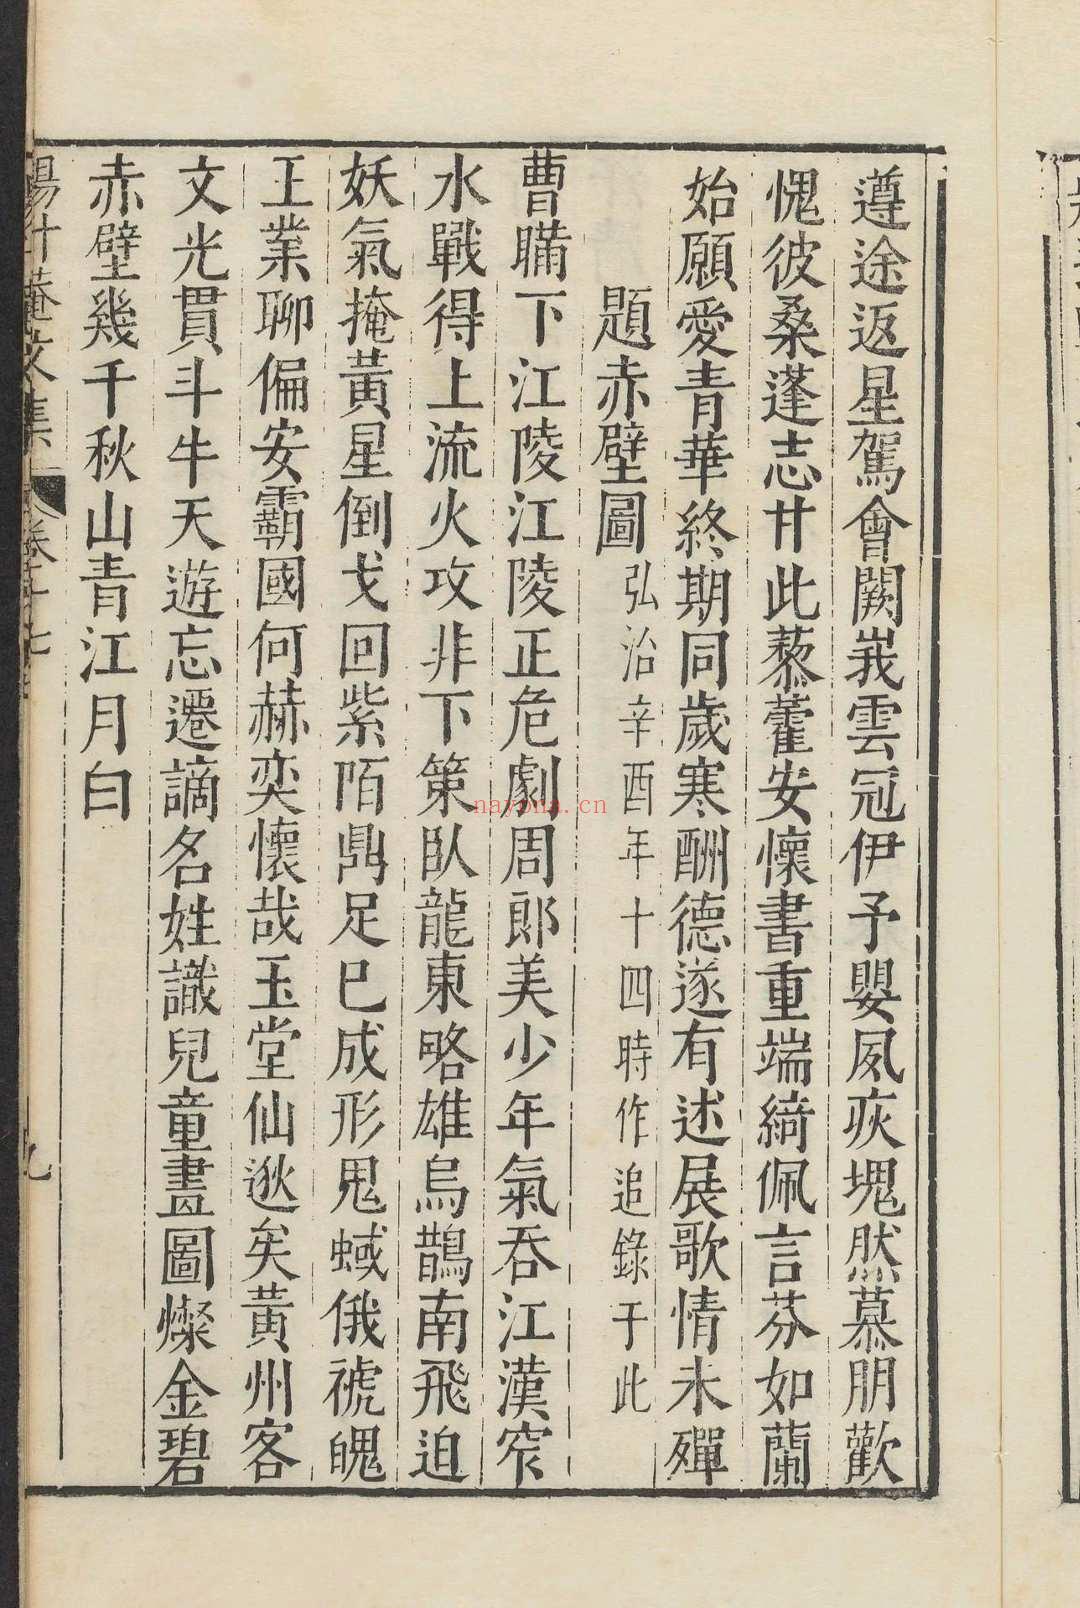 遵途返星駕會闕峩雲冠伊予嬰夙疢塊然慕朋歡
愧彼桑蓬志甘此藜藿安懷書重端綺佩言芬如蘭
始願愛青華終期同歲寒酬德遂有述展歌情未殫
題赤壁圖弘治辛酉年十四時作追錄于此
曹瞞下江陵江陵正危劇周郎美少年氣吞江漢窄
水戰得上流火攻非下策臥龍東略雄烏鵲南飛迫
妖氣掩黃星倒戈回紫陌鼎足已成形鬼蜮俄褫魄
王業聊偏安霸國何赫奕懷哉玉堂仙逖矣黃州客
文光貫斗牛天遊忘遷謫名姓識兒童畫圖燦金碧
赤壁幾千秋山青江月白
楊升菴文集 卷二十七 九
nayona.cn